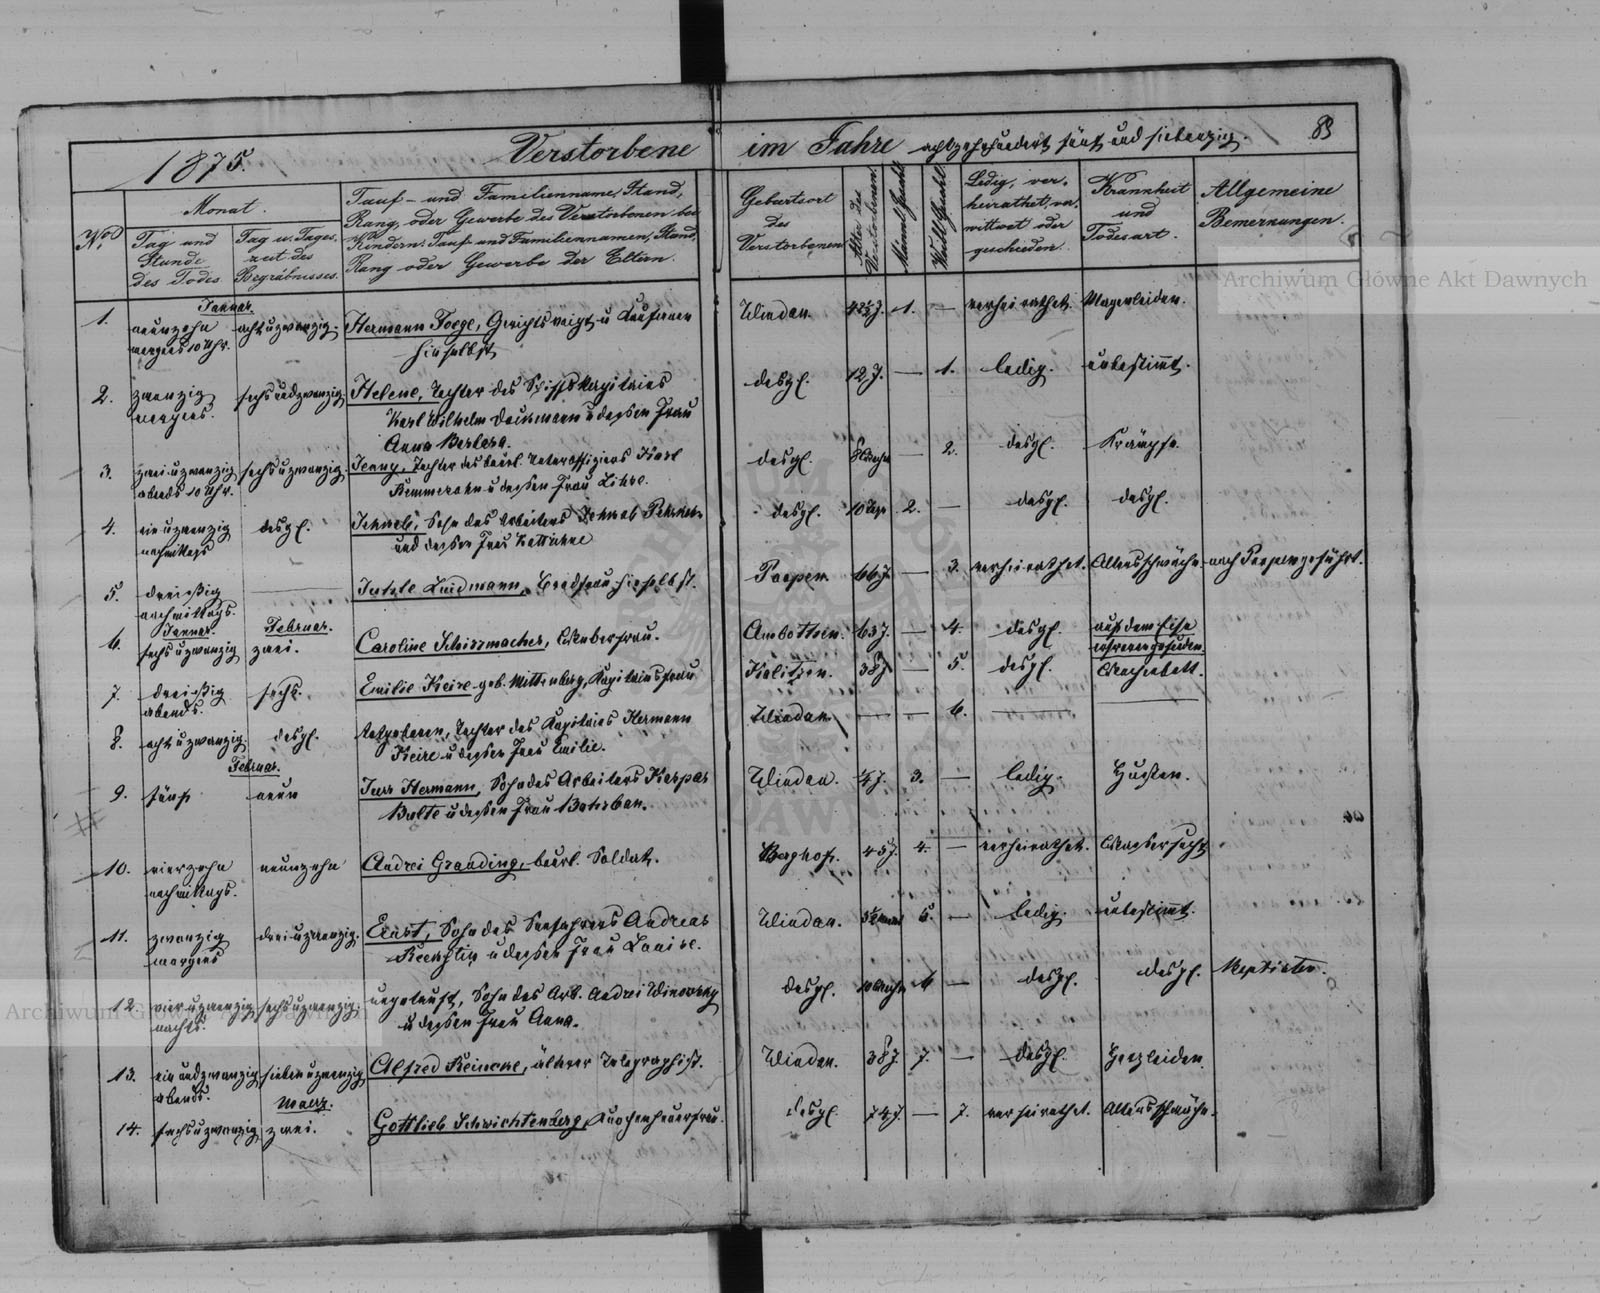 1875.
Verstorbene im Jahre achtzehnhundert fünf und siebenzig.
83
No
Monat.
Tag und Stunde des Todes
Tag u. Tageszeit des Begräbnisses.
Tauf- und Familienname, Stand,
Rang, oder Gewerbe des Verstorbenen bei
Kindern: Tauf- und Familiennamen, Stand,
Rang oder Gewerbe der Eltern.
Geburtsort des Verstorbenen
Alter des Verstorbenen.
Männl. Geschl.
Weibl. Geschl.
Ledig, verheirathet, verwittwet oder geschieden.
Krankheit und Todesart.
Allgemeine Bemerkungen.
Archiwum Główne Akt Dawnych
Januar.
1. neunzehn morgens 10 Uhr. acht u zwanzig. Hermann Foege, Gerichtsvoigt u Kaufmann hieselbst Windau. 1. — verheirathet. Magenleiden.
2. zwanzig morgens. sechs und zwanzig. Helene, Tochter des Schiffskapitains
Karl Wilhelm u dessen Frau
Anna Barbara. desgl. 12 J. — 1. ledig. unbestimmt.
3. zwei u zwanzig abends 10 Uhr. sechs u zwanzig. Jenny, Tochter des beurl. Unteroffiziers Karl
u dessen Frau desgl. — 2. desgl. Krämpfe.
4. ein u zwanzig nachmittags desgl. Sohn des Arbeiters
und dessen Frau desgl. 2. — desgl. desgl.
5. dreißig nachmittags. — Lindmann, hieselbst. 66 J. — 3. verheirathet. Altersschwäche. nach geführt.
Januar. Februar.
6. sechs u zwanzig zwei. Caroline Schirrmacher, Weberfrau. Ambothen. 63 J. — 4. desgl. auf dem Eise erfroren gefunden.
7. dreißig abends. sechs. Emilie geb. Wittenberg, Kapitainsfrau 38 J. — 5. desgl. Wochenbett.
8. acht u zwanzig desgl. Todtgeboren, Tochter des Kapitains Hermann
u dessen Frau Emilie. Windau — — 6. — —
Februar.
9. fünf neun Hermann, Sohn des Arbeiters Kaspar
u dessen Frau Windau. 3. — ledig. Husten.
10. vierzehn nachmittags. neunzehn Andrei Grauding, beurl. Soldat. Berghof. 45 J. 4. — verheirathet. Wassersucht
11. zwanzig morgens drei u zwanzig. Ernst, Sohn des Seefahrers Andreas
u dessen Frau Louise. Windau. 5. — ledig. unbestimmt.
12. vier u zwanzig nachts. sechs u zwanzig. ungetauft, Sohn des Arb. Andrei Winowsky
u dessen Frau Anna. desgl. 6. — desgl. desgl. Baptisten.
Archiwum Główne Akt Dawnych
13. ein und zwanzig abends. sieben u zwanzig Alfred Reincke, älterer Telegraphist. Windau. 38 J. 7. — desgl. Herzleiden.
Maerz.
14. sechs u zwanzig zwei. Gottlieb Schwichtenberg, desgl. 74 J. — 7. verheirathet. Altersschwäche.